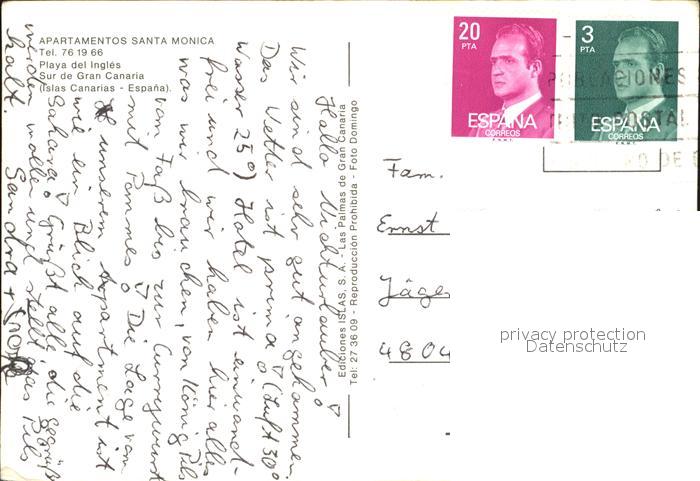 APARTAMENTOS SANTA MONICA
Tel. 76 19 66
Playa del Inglés
Sur de Gran Canaria
(Islas Canarias - España).
Hallo Nichturlauber!
Wir sind sehr gut angekommen.
Das Wetter ist prima! (Luft 30°
Wasser 25°) Hotel ist einwand-
frei und wir haben hier alles
was wir brauchen, von König Pils
vom Faß bis zur Currywurst
mit Pommes! Die Lage von
unserem Appartment ist
wie ein Blick auf die
Sahara! Grüßt alle die gegrüßt
werden wollen und stellt das Pils
kalt.
Sandra +
Ediciones ISLAS, S. A. - Las Palmas de Gran Canaria
Tel: 27 36 09 - Reproducción Prohibida - Foto Domingo
20
PTA
ESPAÑA
CORREOS
F.N.M.T.
3
PTA
ESPAÑA
CORREOS
F.N.M.T.
POBLACIONES
POSTAL
DE
Fam.
Ernst
Jäge
4804
privacy protection
Datenschutz